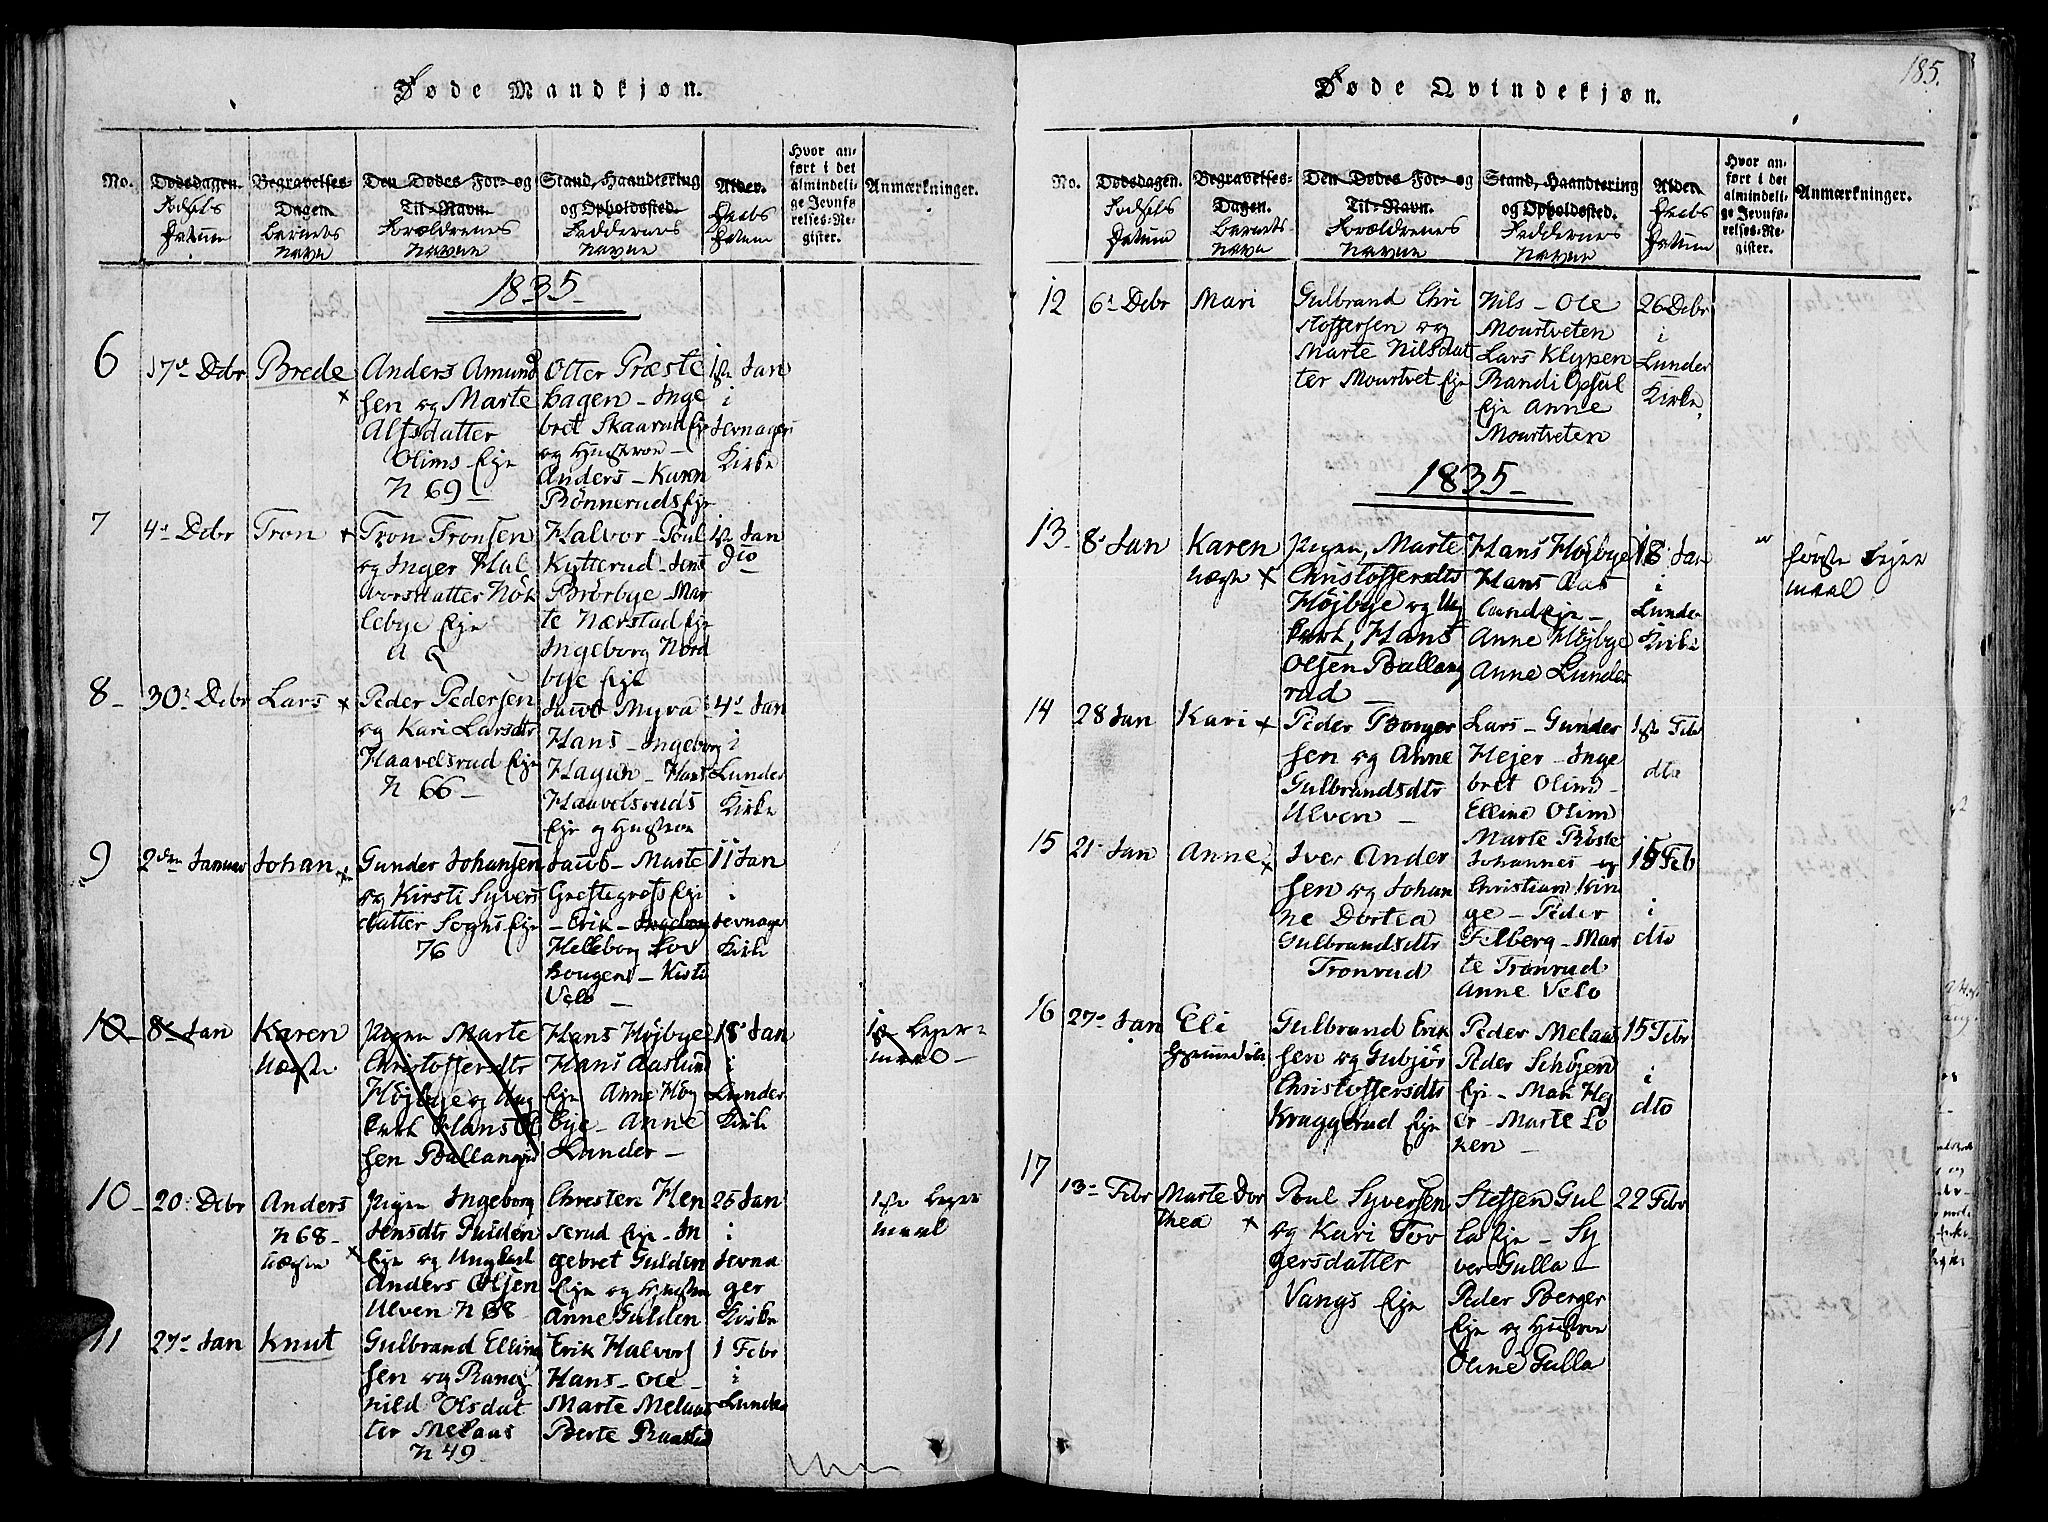 185.
Døde Mandkjøn.
No.
Dødsdagen.
Fødsels
Datum
Begravelses-
Dagen.
Barnets
Navn
Den Dødes For- og
Til-Navn.
Forældrenes
Navne
Stand, Haandtering
og Opholdssted.
Faddernes
Navne
Alder.
Daabs
Datum
Hvor an-
ført i det
almindeli-
ge Jevnfø-
relses-Re-
gister.
Anmærkninger.
1835
6
17de Debr
Brede
Anders Amund
sen og Marte
Alfsdatter
Olims Eje
N 69
Otter Præste
hagen - Inge
bret Skaarud Eje
og Hustroe -
Anders - Karen
Bønneruds Eje
1ste Jan
i
Jevnager
Kirke
7
4de Debr
Tron
Tron Tronsen
og Inger Hal
vorsdatter Nøk
lebye Eje
Halvor - Poul
Kytterud - Jens
Brørbye - Mar
te Nærstad Eje
Ingeborg Nord
bye Eje
1ste Jan
dio
8
30: Debr
Lars
Peder Pedersen
og Kari Larsdtr
Haavelsrud Eje
N 66
Jacob Myra
Hans - Ingeborg
Hagen - Hans
Haavelsruds
Eje og Hustroe
4de Jan
i
Lunder
Kirke
9
2den Januar
Johan
Gunder Johansen
og Kirste Syvers
datter Sogns Eje
76
Jacob - Marte
Greftegrefs Eje
- Erik - Ingeborg
Helleborg Lov
hougens - Kisti
Velo
11 Jan
i
Jevnager
Kirke
10
8de Jan
Karen
Uægte
Pigen Marte
Christoffersdtr
Højbye og Ung
karl Hans Ol
sen Ballangrud
Hans Højbye
Hans Aaslund
Eje Anne Høj
bye - Anne
Lunder -
18de Jan
i
Lunder
Kirke
1ste Lejer-
maal -
10
20: Debr
Anders
N 68
uægte
Pigen Ingeborg
Jensdtr Gulden
Eje og Ungkarl
Anders Olsen
Ulven N 68
Christen Hen
serud Eje - In
gebret Gulden
Eje og Hustroe
Anne Gulden
25 Jan
i
Jevna
ger
Kirke
1ste Lejer
maal
11
27de Jan
Knut
Gulbrand Elling
sen og Rang
nild Olsdat
ter Melaas
N 49
Erik Halvors
Hans - Ole -
Marte Melaas
Berte Raastad
1 Febr
i
Lunder
Døde Qvindekjøn.
No.
Dødsdagen.
Fødsels
Datum
Begravelses-
Dagen.
Barnets-
Navn
Den Dødes For- og
Til-Navn.
Forældrenes
Navne
Stand, Haandtering
og Opholdssted.
Faddernes
Navne
Alder
Daabs
Datum
Hvor an-
ført i det
almindeli-
ge Jevnfø-
relses-Re-
gister.
Anmærkninger.
12
6te Debr
Mari
Gulbrand Chri
stoffersen og
Marte Nilsdat
ter Mourtvet Eje
Nils - Ole
Mourtveten
Lars Klypen
Randi Opsal
Eje Anne
Mourtveten
26 Debr
i
Lunder
Kirke
1835
13
8de Jan
Karen
Uægte
Pigen, Marte
Christoffersdtr
Højbye og Ung
karl, Hans
Olsen Ballang
rud
Hans Højbye
Hans Aas
lund Eje -
Anne Højbye
Anne Lunder
18 Jan
i
Lunder
Kirke
første Lejer
maal
14
28 Jan
Kari
Peder Borger
sen og Anne
Gulbrandsdtr
Ulven
Lars - Gunder
Hejer - Inge
bret Olim -
Elline Olim
1ste Feb
dto
15
21de Jan
Anne
Iver Ander
sen og Johan
ne Dortea
Gulbrandsdtr
Tronrud
Marte Røste
Johannes - og
Christian Rin
ge - Peder
Felberg - Mar
te Tronrud
Anne Velo
15 Feb
i
dto
16
27de Jan
Eli
Gulbrand Erik
sen og Gubjør
Christoffersdtr
Kraggerud Eje
Peder Melaas
Peder Schøjen
Eje - Mari Hej
er - Marte Lo
ken -
15 Febr
i
dto
17
13de Febr
Marte Dor
thea
Poul Syversen
og Kari Tov
gersdatter
Vangs Eje
Steffen Gul
la Eje - Sy
ver Gulla -
Peder Berger
Eje og Hustroe
Oline Gulla
22 Febr